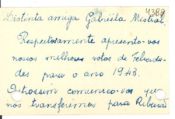 4389
Distinta amiga Gabriela Mistral,
Respeitosamente apresento-vos
nossos melhores votos de felicida-
des para o ano 1943.
Outrossim comunico-vos que
nos transferimos para Ribeirão